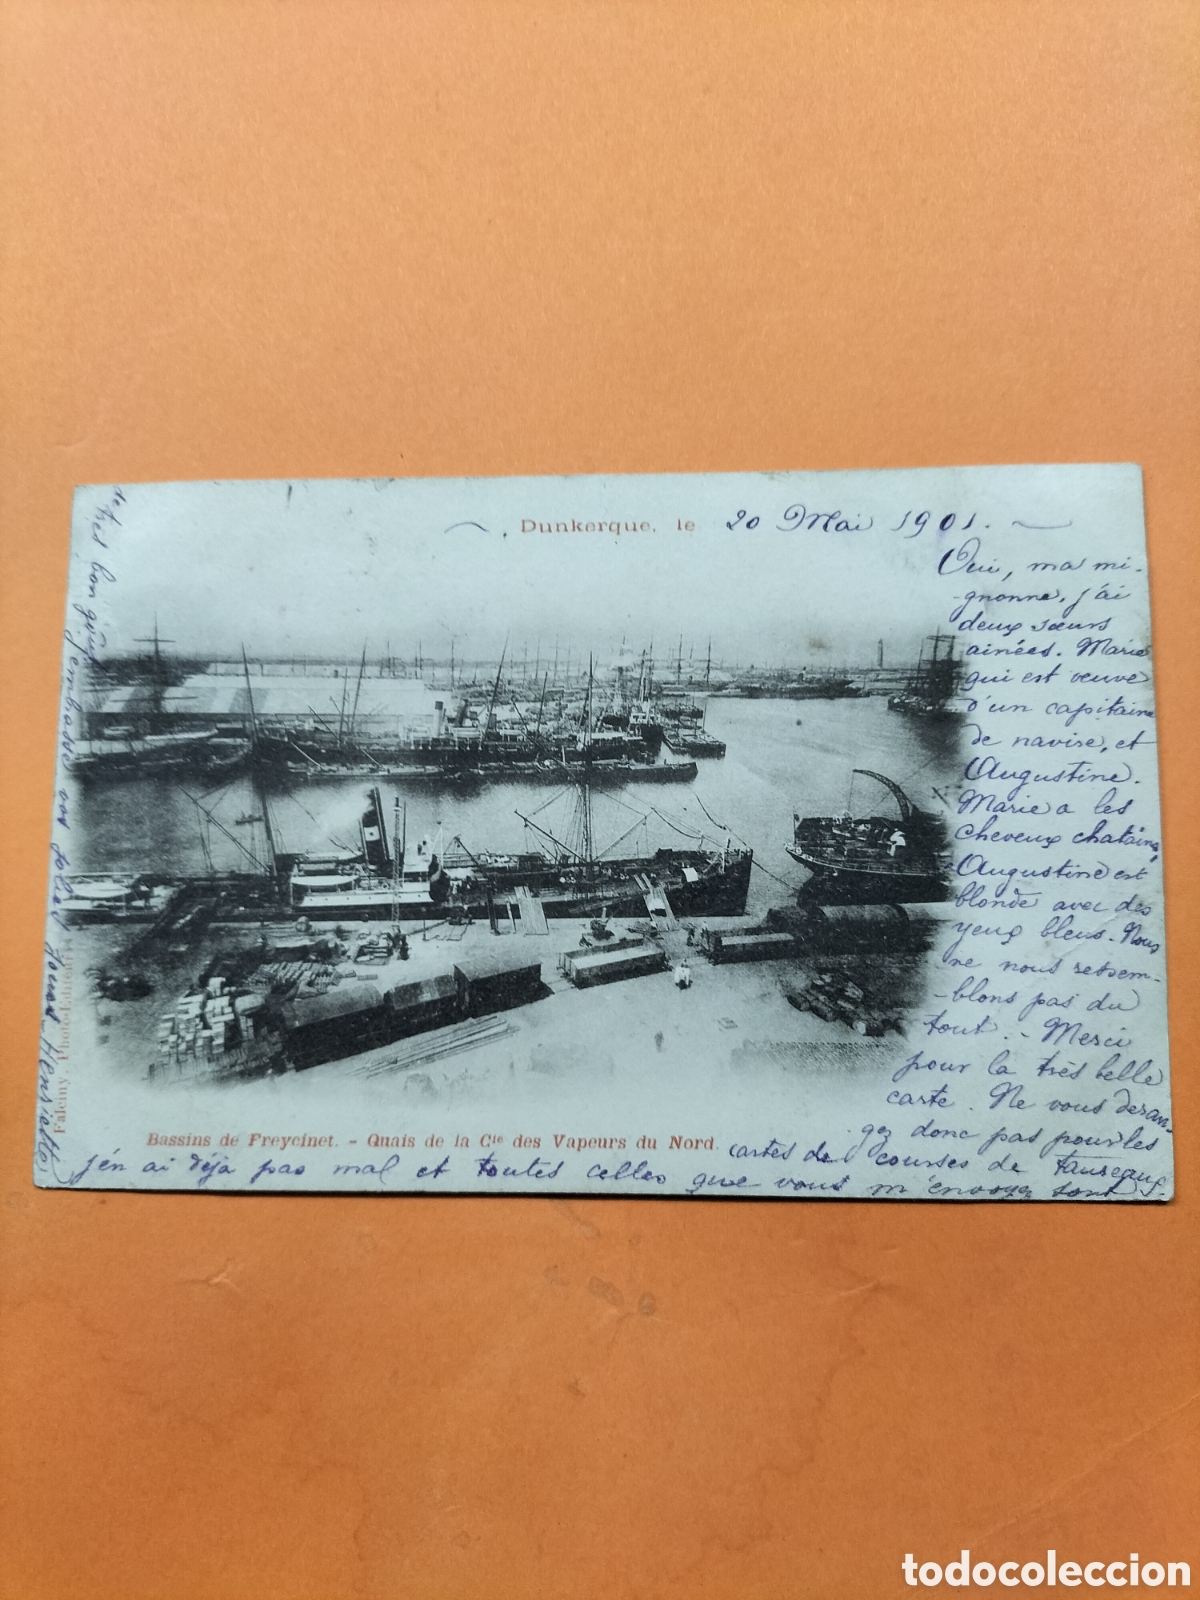 Dunkerque, le 20 Mai 1901.
Oui, ma mi-
-gnonne, j'ai
deux sœurs
ainées. Marie
qui est veuve
d'un capitaine
de navire, et
Augustine.
Marie a les
cheveux chatains,
Augustine est
blonde avec des
yeux bleus. Nous
ne nous ressem-
-blons pas du
tout. - Merci
pour la très belle
carte. Ne vous deran-
gez donc pas pour les
cartes de courses de taureaux.
j'en ai déjà pas mal et toutes celles que vous m'envoyez sont
de très bon goût.
J'embrasse vos jolies joues. Henriette
Bassins de Freycinet. - Quais de la Cie des Vapeurs du Nord.
todocoleccion